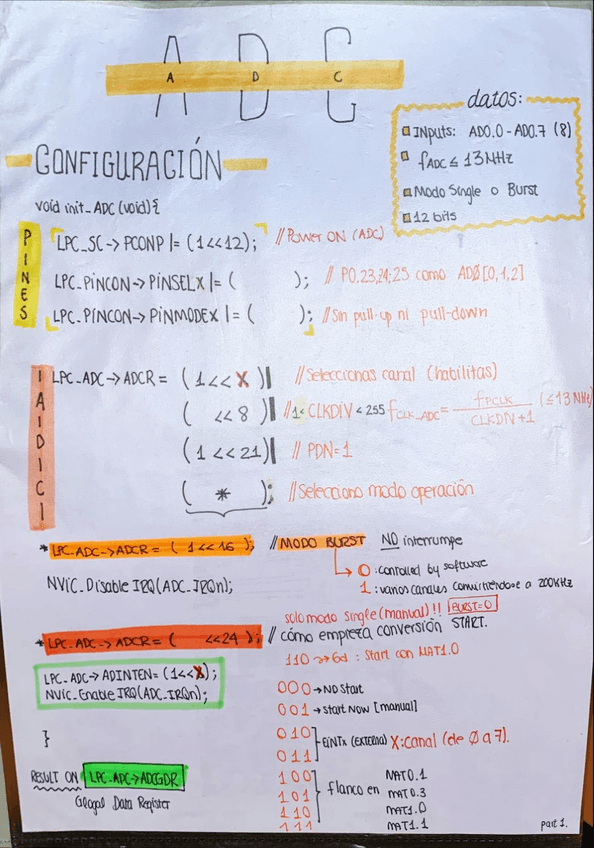 A D C
A D C
datos:
INputs: AD0.0 - AD0.7 (8)
fADC ≤ 13 NHz
Modo Single o Burst
12 bits
CONFIGURACIÓN
void init_ADC (void){
PINES
LPC_SC -> PCONP |= (1<<12); //Power ON (ADC)
LPC_PINCON -> PINSELX |= ( ); // P0.23,24,25 como ADØ[0,1,2]
LPC_PINCON -> PINMODEX |= ( ); //Sin pull-up ni pull-down
LPC_ADC -> ADCR = (1<<X)| //Seleccionas canal (habilitas)
( <<8)| //1< CLKDIV < 255 fCLK_ADC = fPCLK / CLKDIV+1 (≤13 NHz)
(1<<21)| // PDN=1
( * ); //Selecciono modo operación
* LPC_ADC->ADCR = (1<<16); //MODO BURST NO interrumpe
0 : controlled by software
1 : varios canales convirtiéndose a 200kHz
NVIC_Disable IRQ(ADC_IRQn);
solo modo Single (manual)!! BURST=0
* LPC_ADC->ADCR = ( <<24); // cómo empieza conversión START.
110 → 6d : Start con MAT1.0
LPC_ADC-> ADINTEN= (1<<X);
NVIC_Enable IRQ(ADC_IRQn);
000 → NO Start
001 → Start Now [manual]
010
EINTx (externa) X:canal (de Ø a 7).
011
}
RESULT ON LPC_ADC->ADCGDR
Glogal Data Register
100 MAT0.1
101 flanco en MAT0.3
110 MAT1.0
111 MAT1.1
part 1.